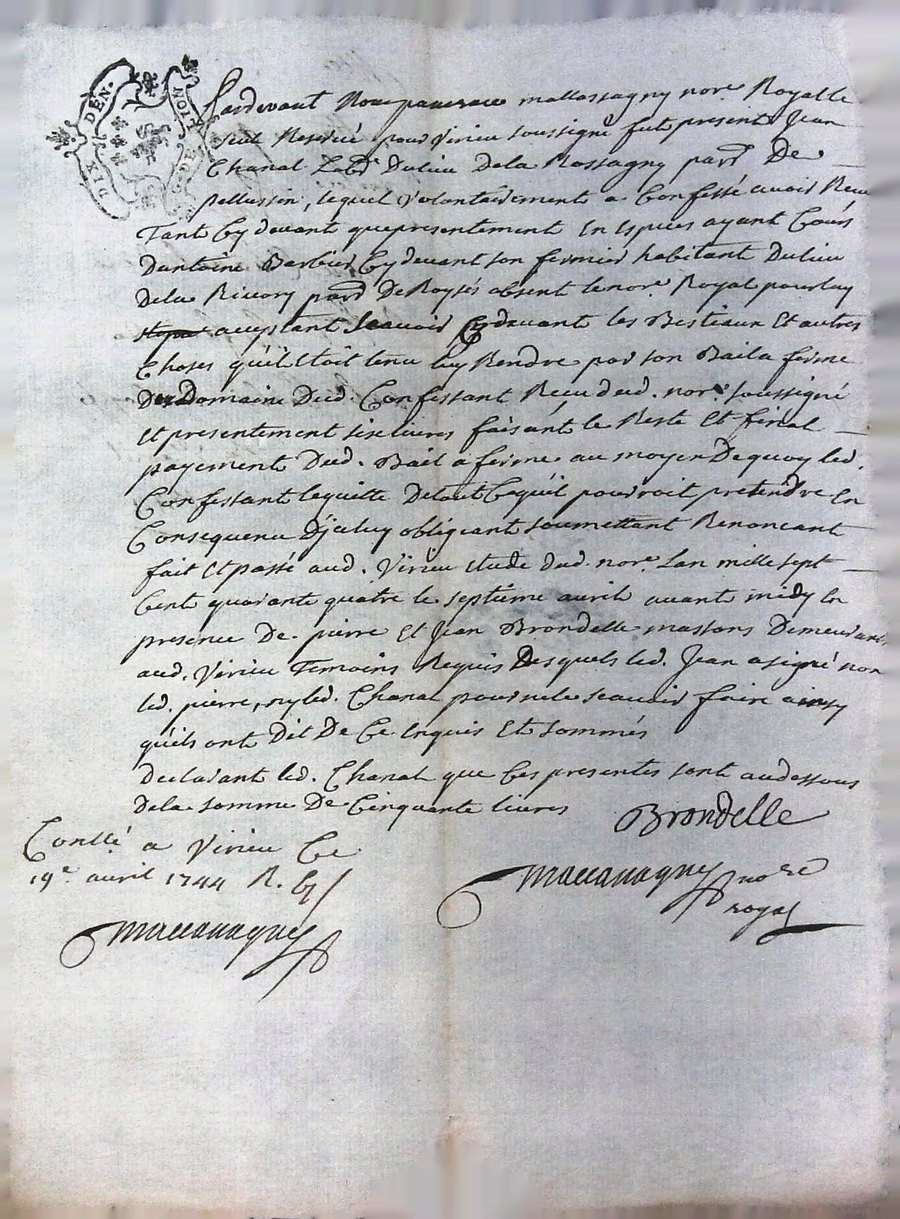 DIX DEN.
Pardevant Nous pancrace mallassagny nore. Royalle
seul Reservé pour Virieu soussigné fut present Jean
Chanal Labr. Du lieu De la Rossagny parr. De
pellussin, lequel Volontairement a Confessé avoir Reçu
Tant Cy devant que presentement En Espices ayant Cours
Dantoine Barbier Cy devant son fermier habitant Du lieu
De la Rivory parr. De Roysés absent le nore. Royal pour luy
acceptant Scavoir Cy devant les Bestiaux Et autres
Choses qu'il Etoit tenu luy Rendre par son Bail a ferme
Du Domaine Dud. Confessant Reçu dud. nore. soussigné
Et presentement six livres faisant le Reste Et final
payement Dud. Bail a ferme au moyen De quoy led.
Confessant le quitte De tout Ce qu'il pourroit pretendre En
Consequence D'jceluy obligeant soumettant Renoncant
fait Et passé aud. Virieu Etude dud. nore. Lan mille sept
Cent quarante quatre le septième avril avant midy En
presence De pierre Et Jean Brondelle massons Demeurant
aud. Virieu Temoins Requis Desquels led. Jean a signé non
led. pierre, ny led. Chanal pour ne le scavoir faire ainsy
qu'ils ont Dit De Ce Enquis Et sommés
Declarant led. Chanal que Ces presentes sont au dessous
De la somme De Cinquante livres
Brondelle
Conllé a Virieu Ce
19e avril 1744 R.
nore
royal